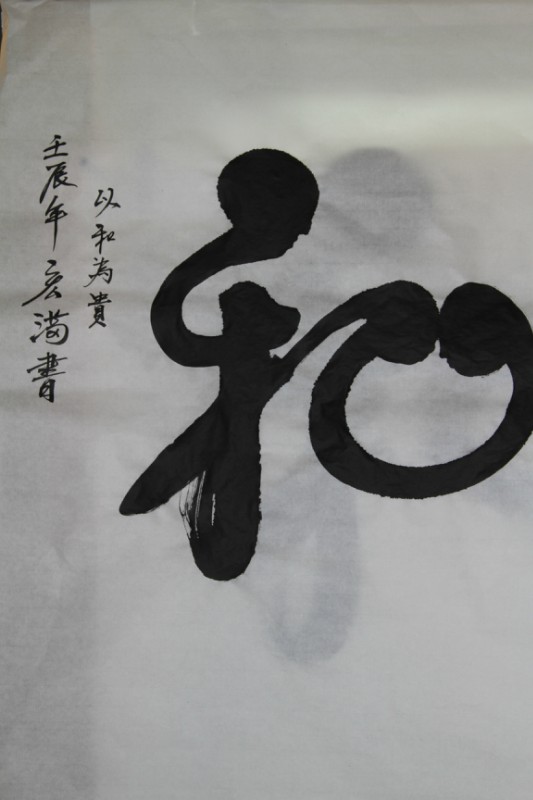 和
以和為貴
壬辰年宏满書